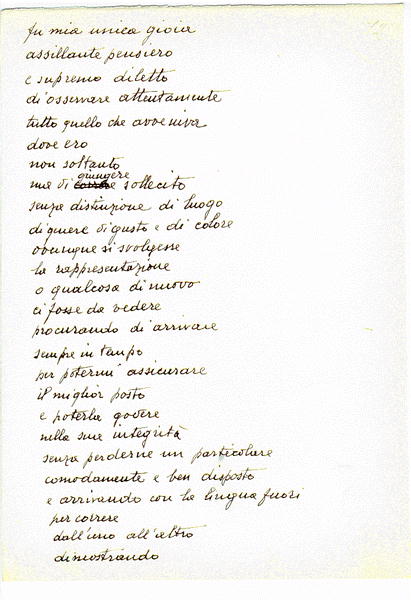 fu mia unica gioia
assillante pensiero
e supremo diletto
di osservare attentamente
tutto quello che avveniva
dove ero
non soltanto
giungere
ma di correre sollecito
senza distinzione di luogo
di genere di gusto e di colore
ovunque si svolgesse
la rappresentazione
o qualcosa di nuovo
ci fosse da vedere
procurando di arrivare
sempre in tempo
per potermi assicurare
il miglior posto
e poterla godere
nella sua integrità
senza perderne un particolare
comodamente e ben disposto
e arrivando con la lingua fuori
per correre
dall'uno all'altro
dimostrando